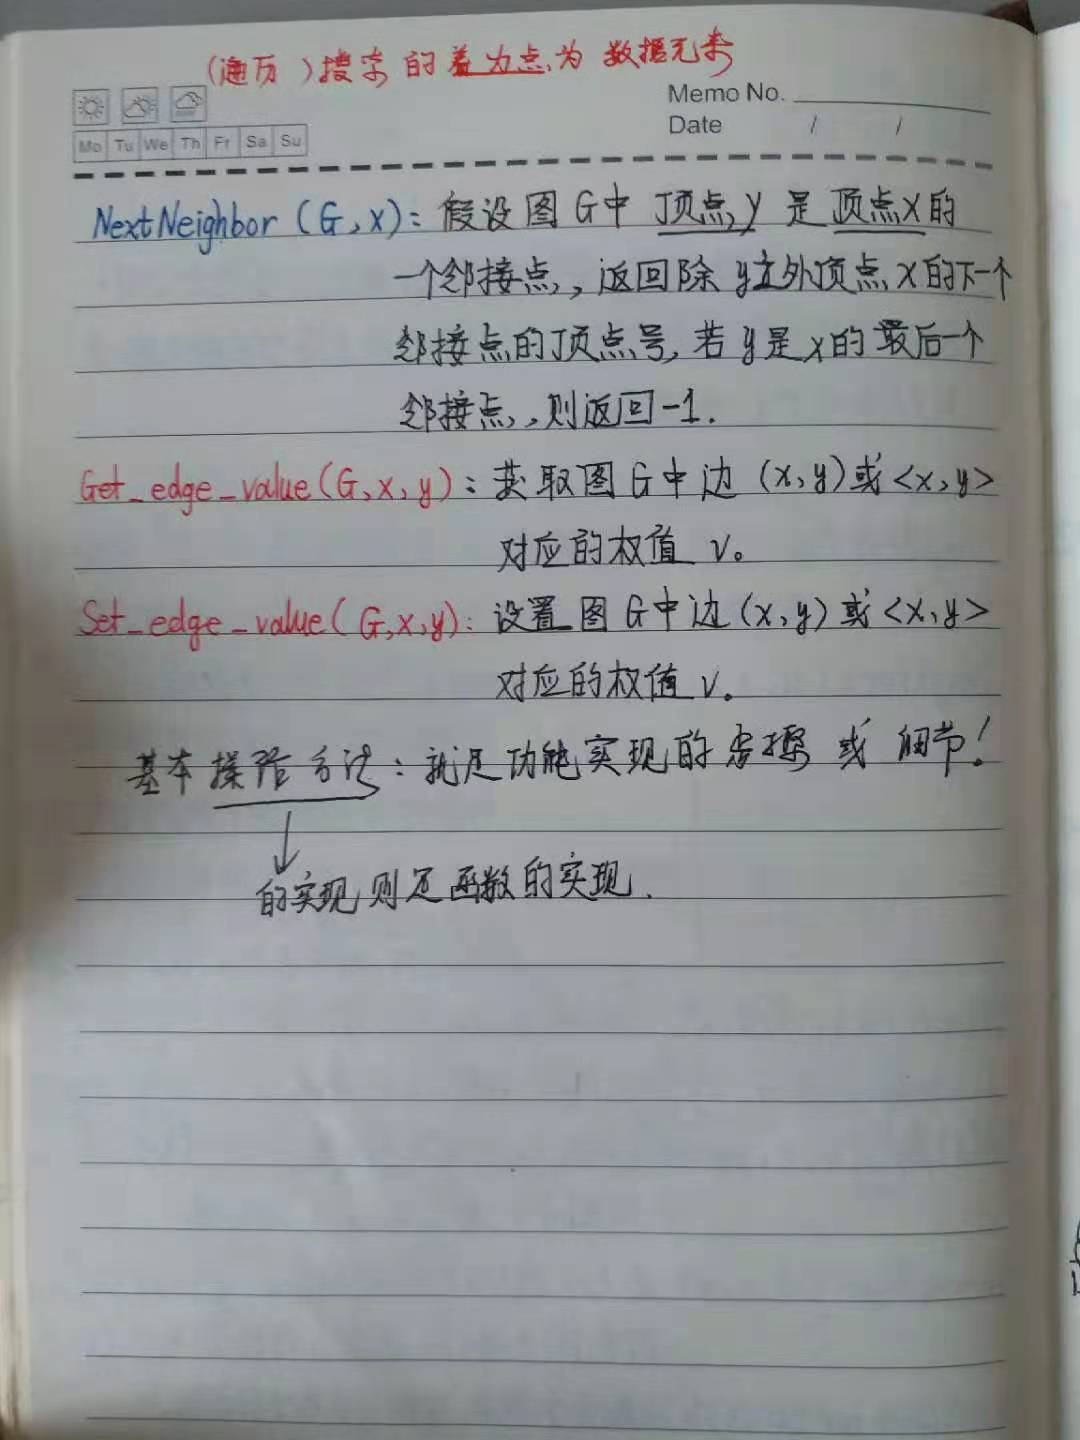 (遍历)搜索的着力点为数据元素
Memo No.
Date / /
Mo Tu We Th Fr Sa Su
NextNeighbor(G,x): 假设图G中顶点y是顶点x的
一个邻接点,返回除y之外顶点x的下一个
邻接点的顶点号,若y是x的最后一个
邻接点,则返回-1.
Get_edge_value(G,x,y): 获取图G中边(x,y)或<x,y>
对应的权值v。
Set_edge_value(G,x,y): 设置图G中边(x,y)或<x,y>
对应的权值v。
基本操作方法:就是功能实现的步骤或细节!
的实现则是函数的实现.